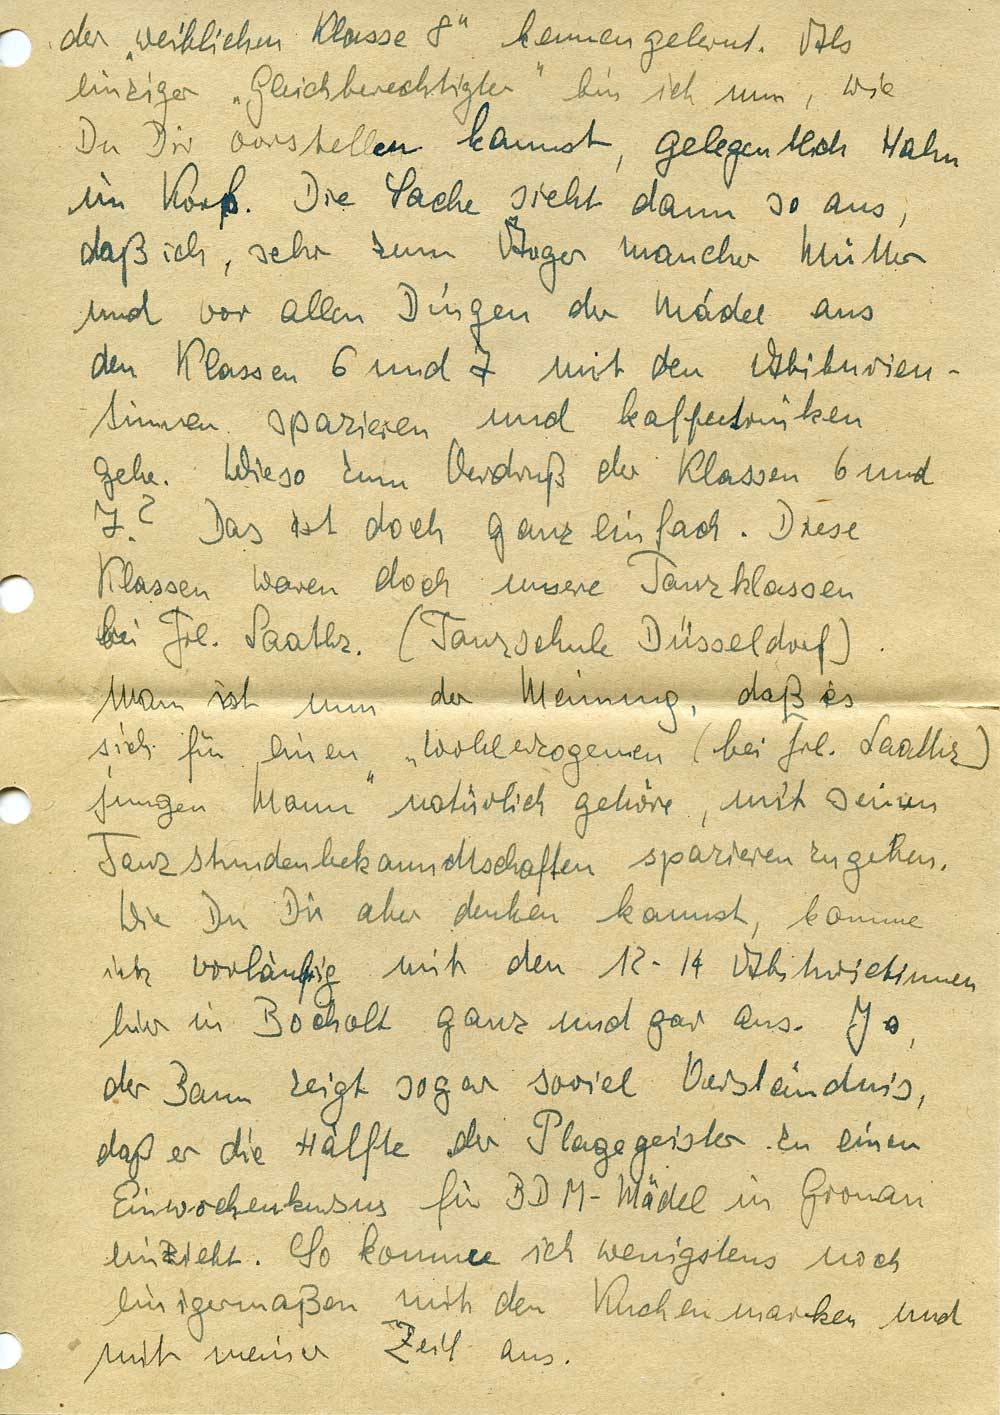 der „weiblichen Klasse 8" kennengelernt. Als
einziger „Gleichberechtigter" bin ich nun, wie
Du Dir vorstellen kannst, gelegentlich Hahn
im Korb. Die Sache sieht dann so aus,
daß ich, sehr zum Ärger mancher Mütter
und vor allen Dingen der Mädel aus
den Klassen 6 und 7 mit den Abiturien-
tinnen spazieren und kaffeetrinken
gehe. Wieso zum Verdruß der Klassen 6 und
7.? Das ist doch ganz einfach. Diese
Klassen waren doch unsere Tanzklassen
bei Frl. Saathz. (Tanzschule Düsseldorf)
Man ist nun der Meinung, daß es
sich für einen „wohlerzogenen (bei Frl. Saathz)
jungen Mann" natürlich gehöre, mit seinen
Tanzstundenbekanndtschaften spazieren zu gehen.
Wie Du Dir aber denken kannst, komme
ich vorläufig mit den 12-14 Abiturietinnen
hier in Bocholt ganz und gar aus. Ja,
der Bann zeigt sogar soviel Verständnis,
daß er die Hälfte der Plagegeister zu einen
Einwochenkursus für BDM-Mädel in Gronau
einzieht. So komme ich wenigstens noch
einigermaßen mit den Kuchenmarken und
mit meiner Zeit aus.